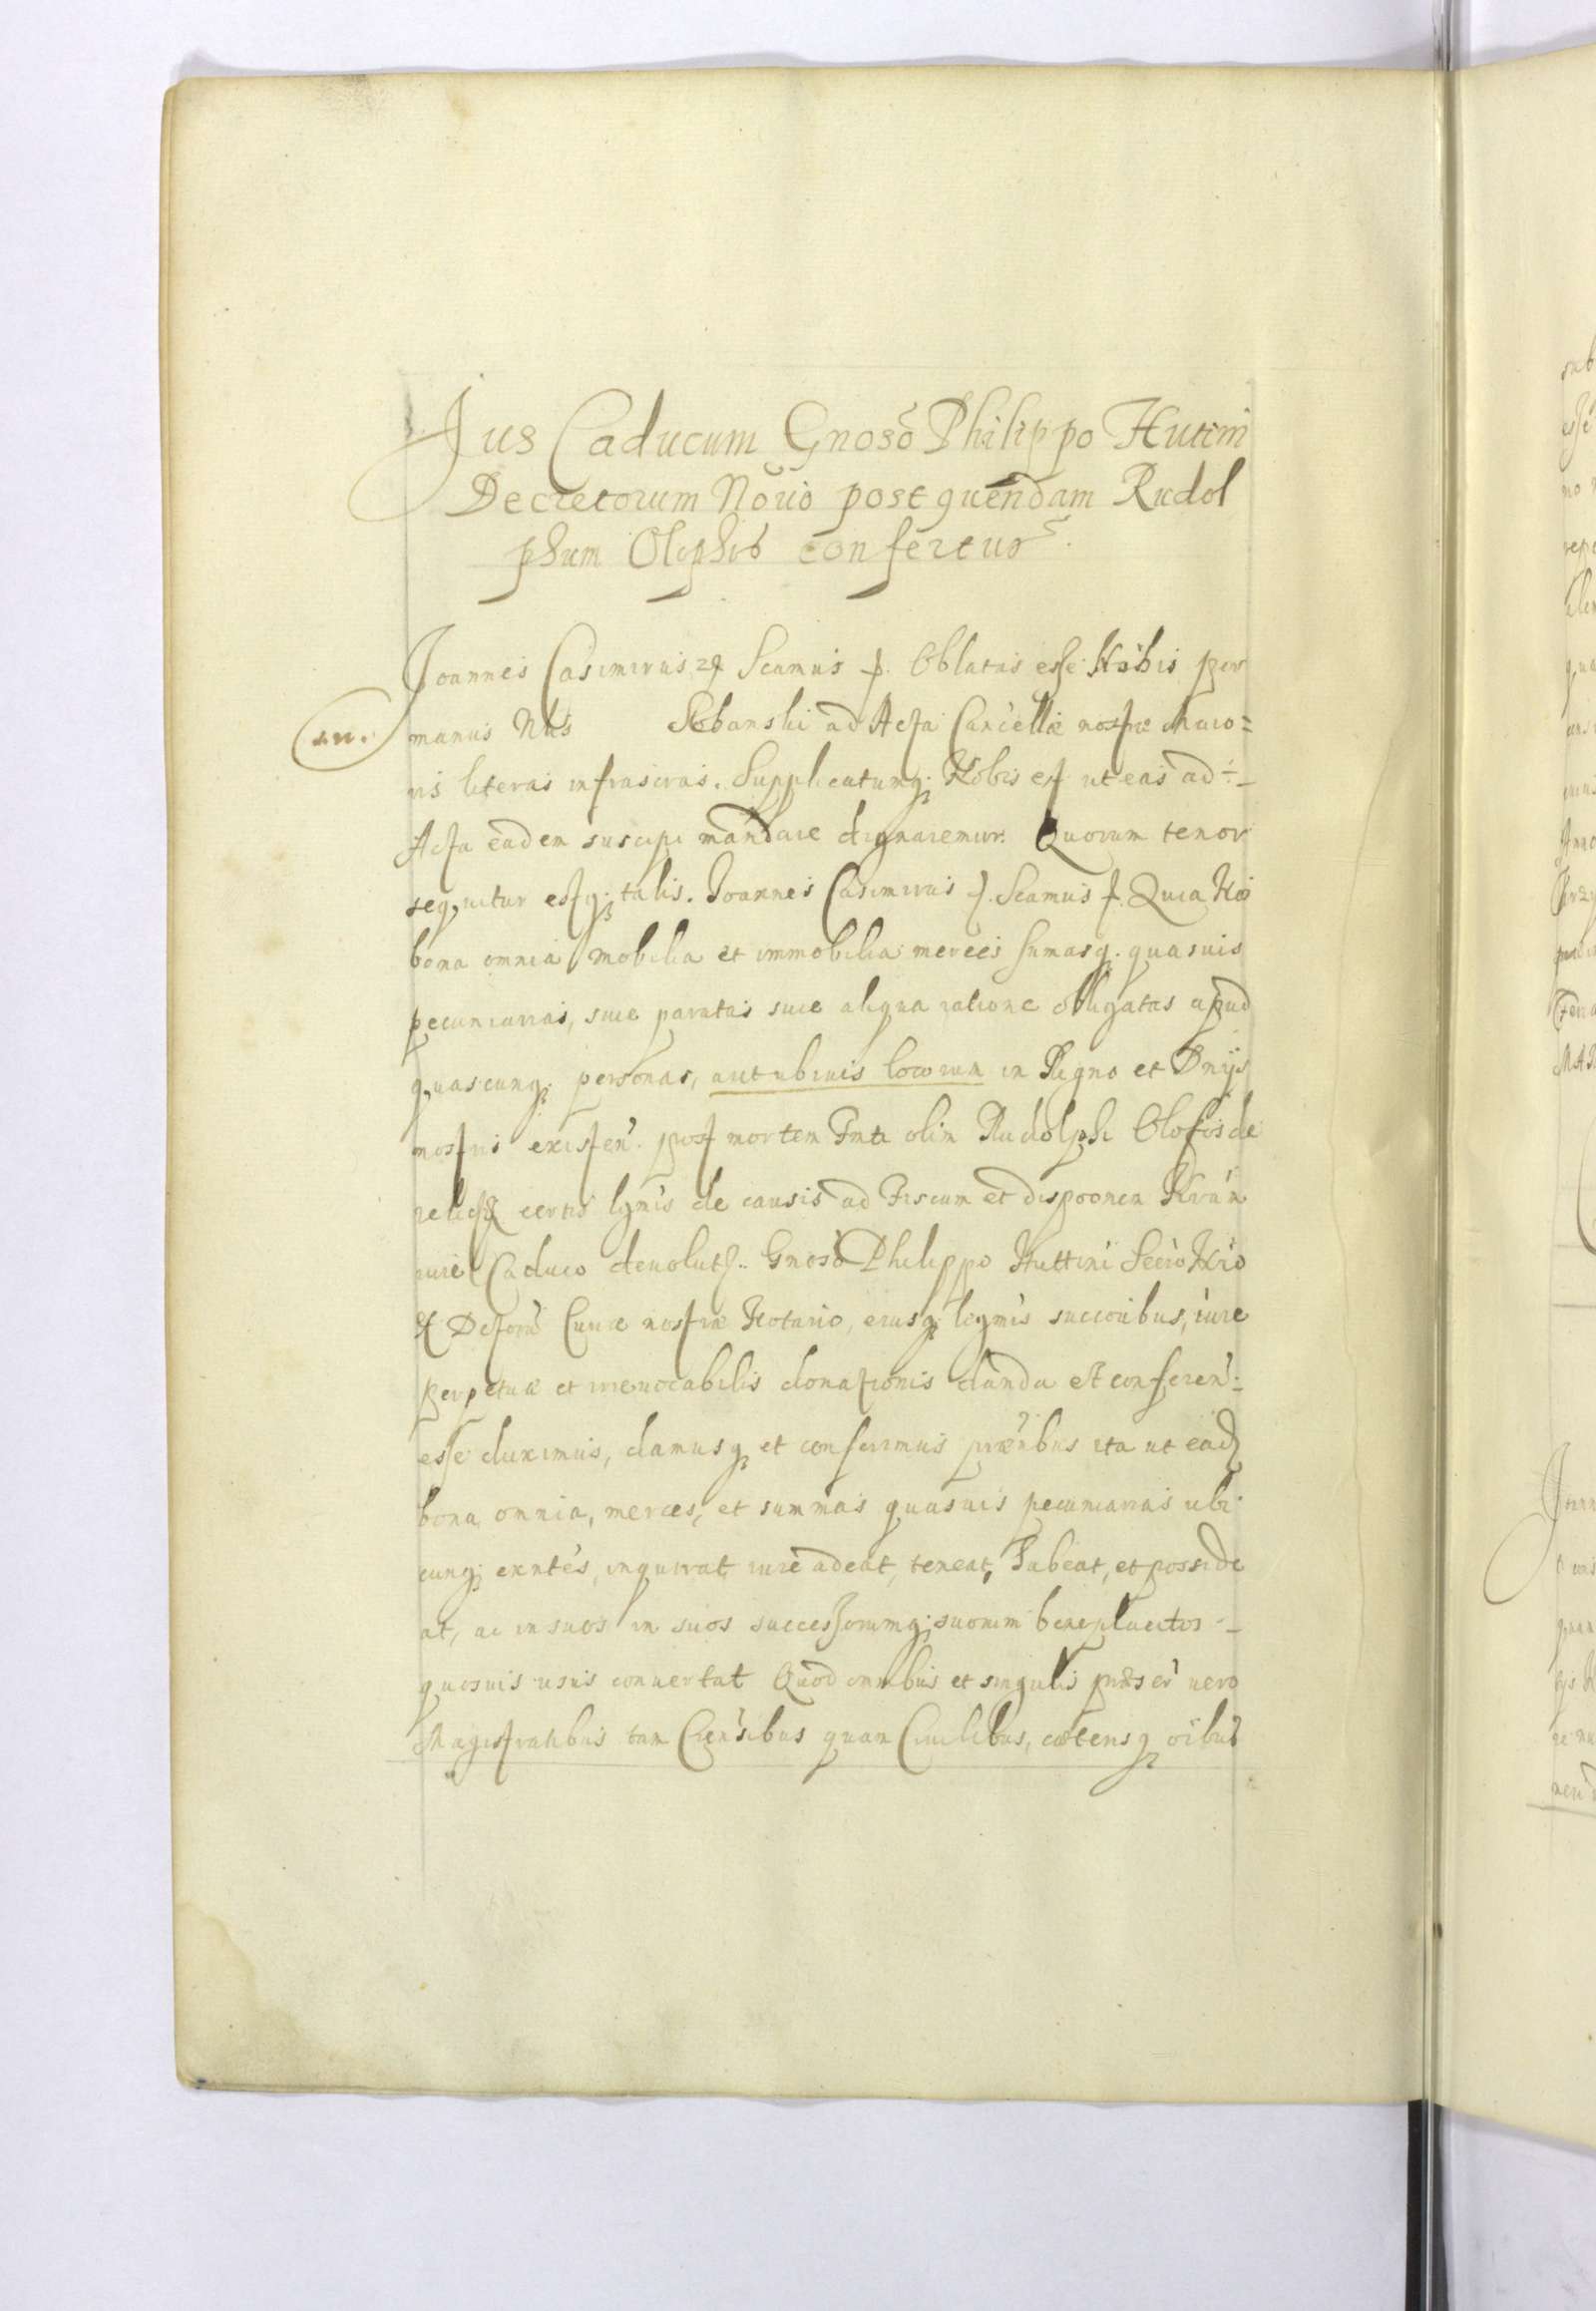 Jus Caducum Gnoso Philippo Huttini
Decretorum Norio post quendam Rudol
phum Oliphis confertur.
Joannes Casimirus etc Scamus etc. Oblatas esse Nobis per
manus Nlis Sobanski ad Acta Cancellae nostrae Maio=
ris literas infrascras. Supplicatumq; Nobis est ut eas ad
Acta eadem suscipi mandare dignaremur. Quorum tenor
sequitur estq; talis. Joannes Casimirus etc. Scamus etc. Quia Nos
bona omnia mobilia et immobilia merces sumasq; quasuis
pecuniarias, siue paratas siue aliqua ratione obligatas apud
quascunq; personas, aut ubiuis locorum in Regno et Dnijs
nostris existen. post mortem olim Rudolphi Olofis de
relicta certis lgmis de causis ad Fiscum et disponem Nram
iure Caduco deuoluta. Gnoso Philippo Huttini Secrio Nro
et Dctorum Curiae nostrae Notario, eiusq; legmis succoribus, iure
perpetuae et irreuocabilis donationis danda et conferen:
esse duximus, damusq; et conferimus prntibus ita ut ead
bona omnia, merces, et summas quasuis pecuniarias ubi
cunq; exntes, inquirat iure adeat, teneat, habeat, et posside
at, ac in suos in suos successorumq; suorum beneplacitos
quosuis usus conuertat Quod omnibus et singulis praeser uero
Magistratibus tam Crensibus quam Ciuilibus, caeterisq; oibus